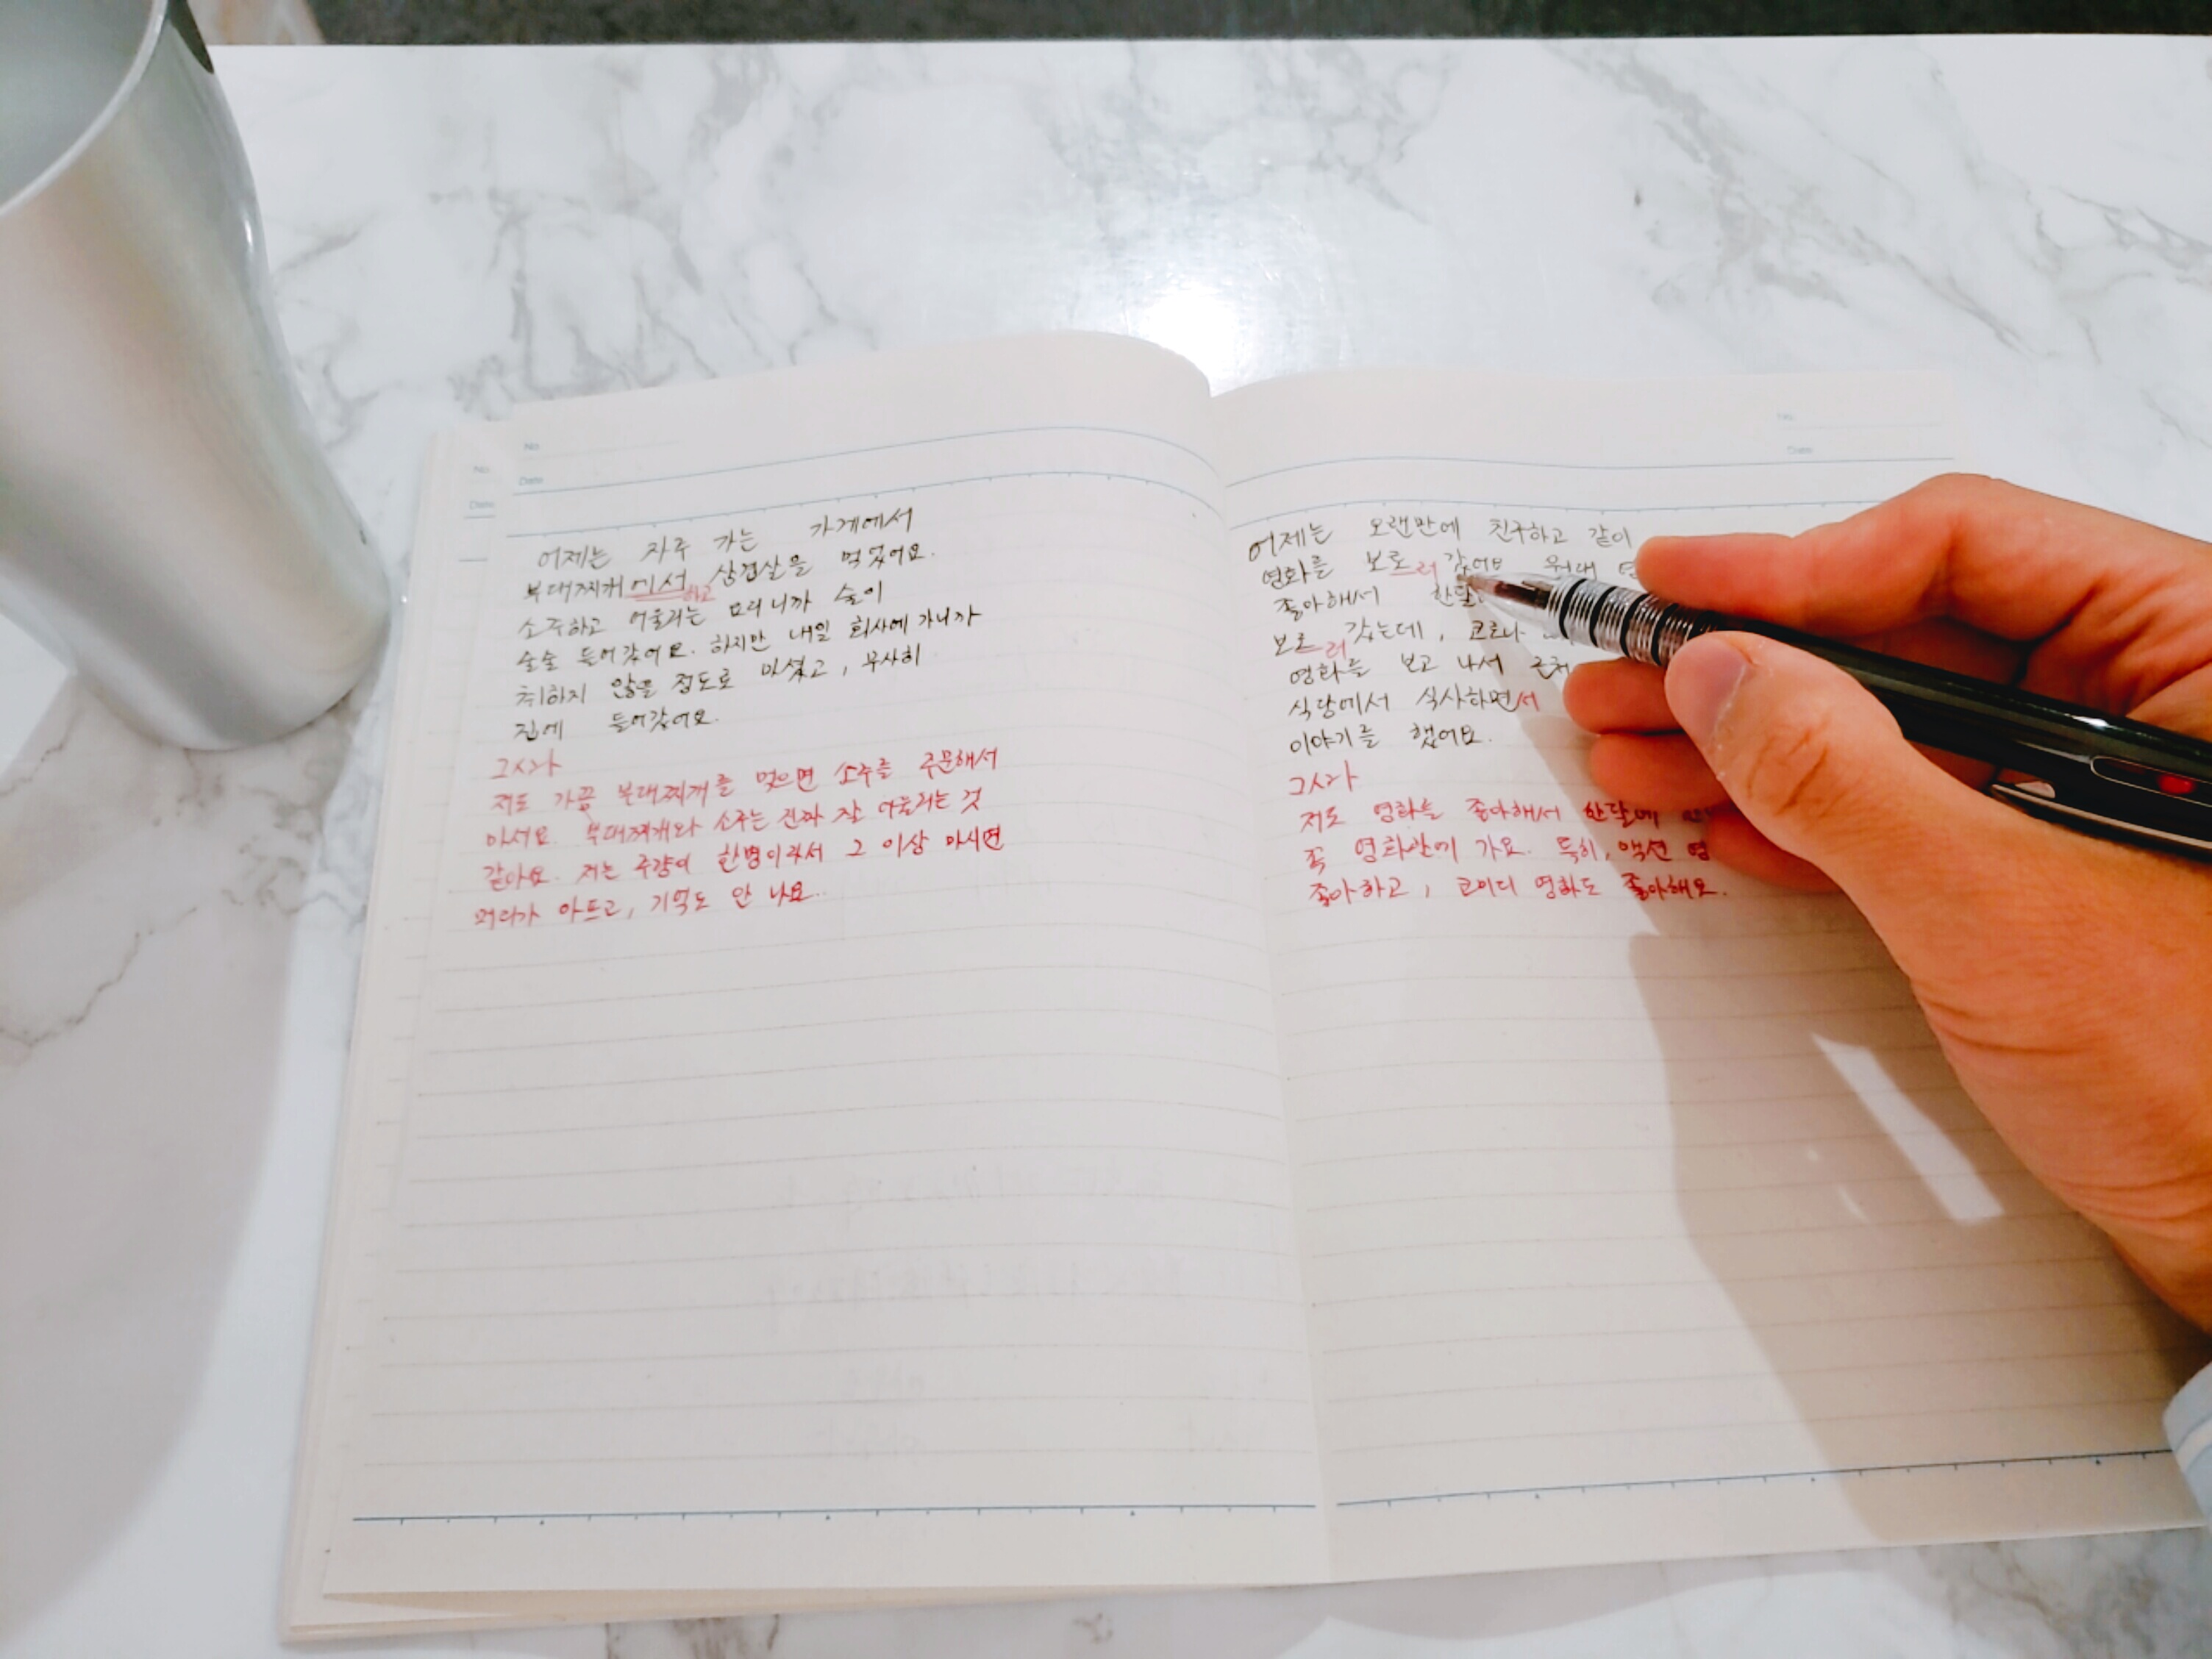 No.
Date
No.
Date
어제는 자주 가는 가게에서
부대찌개에서 삼겹살을 먹었어요.
하고
소주하고 어울리는 요리니까 술이
술술 들어갔어요. 하지만 내일 회사에 가니까
취하지 않을 정도로 마셨고, 무사히
집에 들어갔어요.
저도 가끔 부대찌개를 먹으면 소주를 주문해서
마셔요. 부대찌개와 소주는 진짜 잘 어울리는 것
같아요. 저는 주량이 한병이라서 그 이상 마시면
머리가 아프고, 기억도 안 나요.
No.
Date
어제는 오랜만에 친구하고 같이
영화를 보로 갔어요 원래
러
좋아해서 한달
보로 갔는데, 코로나
러
영화를 보고 나서 근처
식당에서 식사하면서
이야기를 했어요.
저도 영화를 좋아해서 한달에
꼭 영화관에 가요. 특히, 액션
좋아하고, 코미디 영화도 좋아해요.